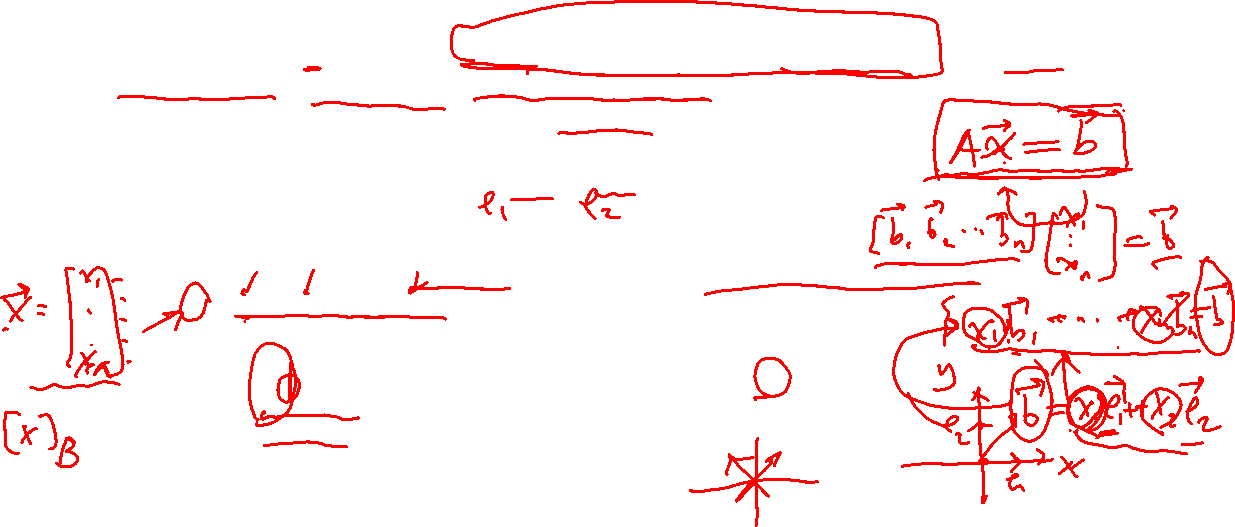 A\vec{x} = \vec{b}
e₁ — e₂
[\vec{b}₁ \vec{b}₂ ... \vec{b}ₙ] [x₁ ⋮ xₙ] = \vec{b}
\vec{x} = [x₁ ⋮ xₙ]
x₁\vec{b}₁ ... xₙ\vec{b}ₙ = \vec{b}
y
\vec{b} = x₁\vec{e}₁ + x₂\vec{e}₂
e₂
[x]_B
x
\vec{e}₁